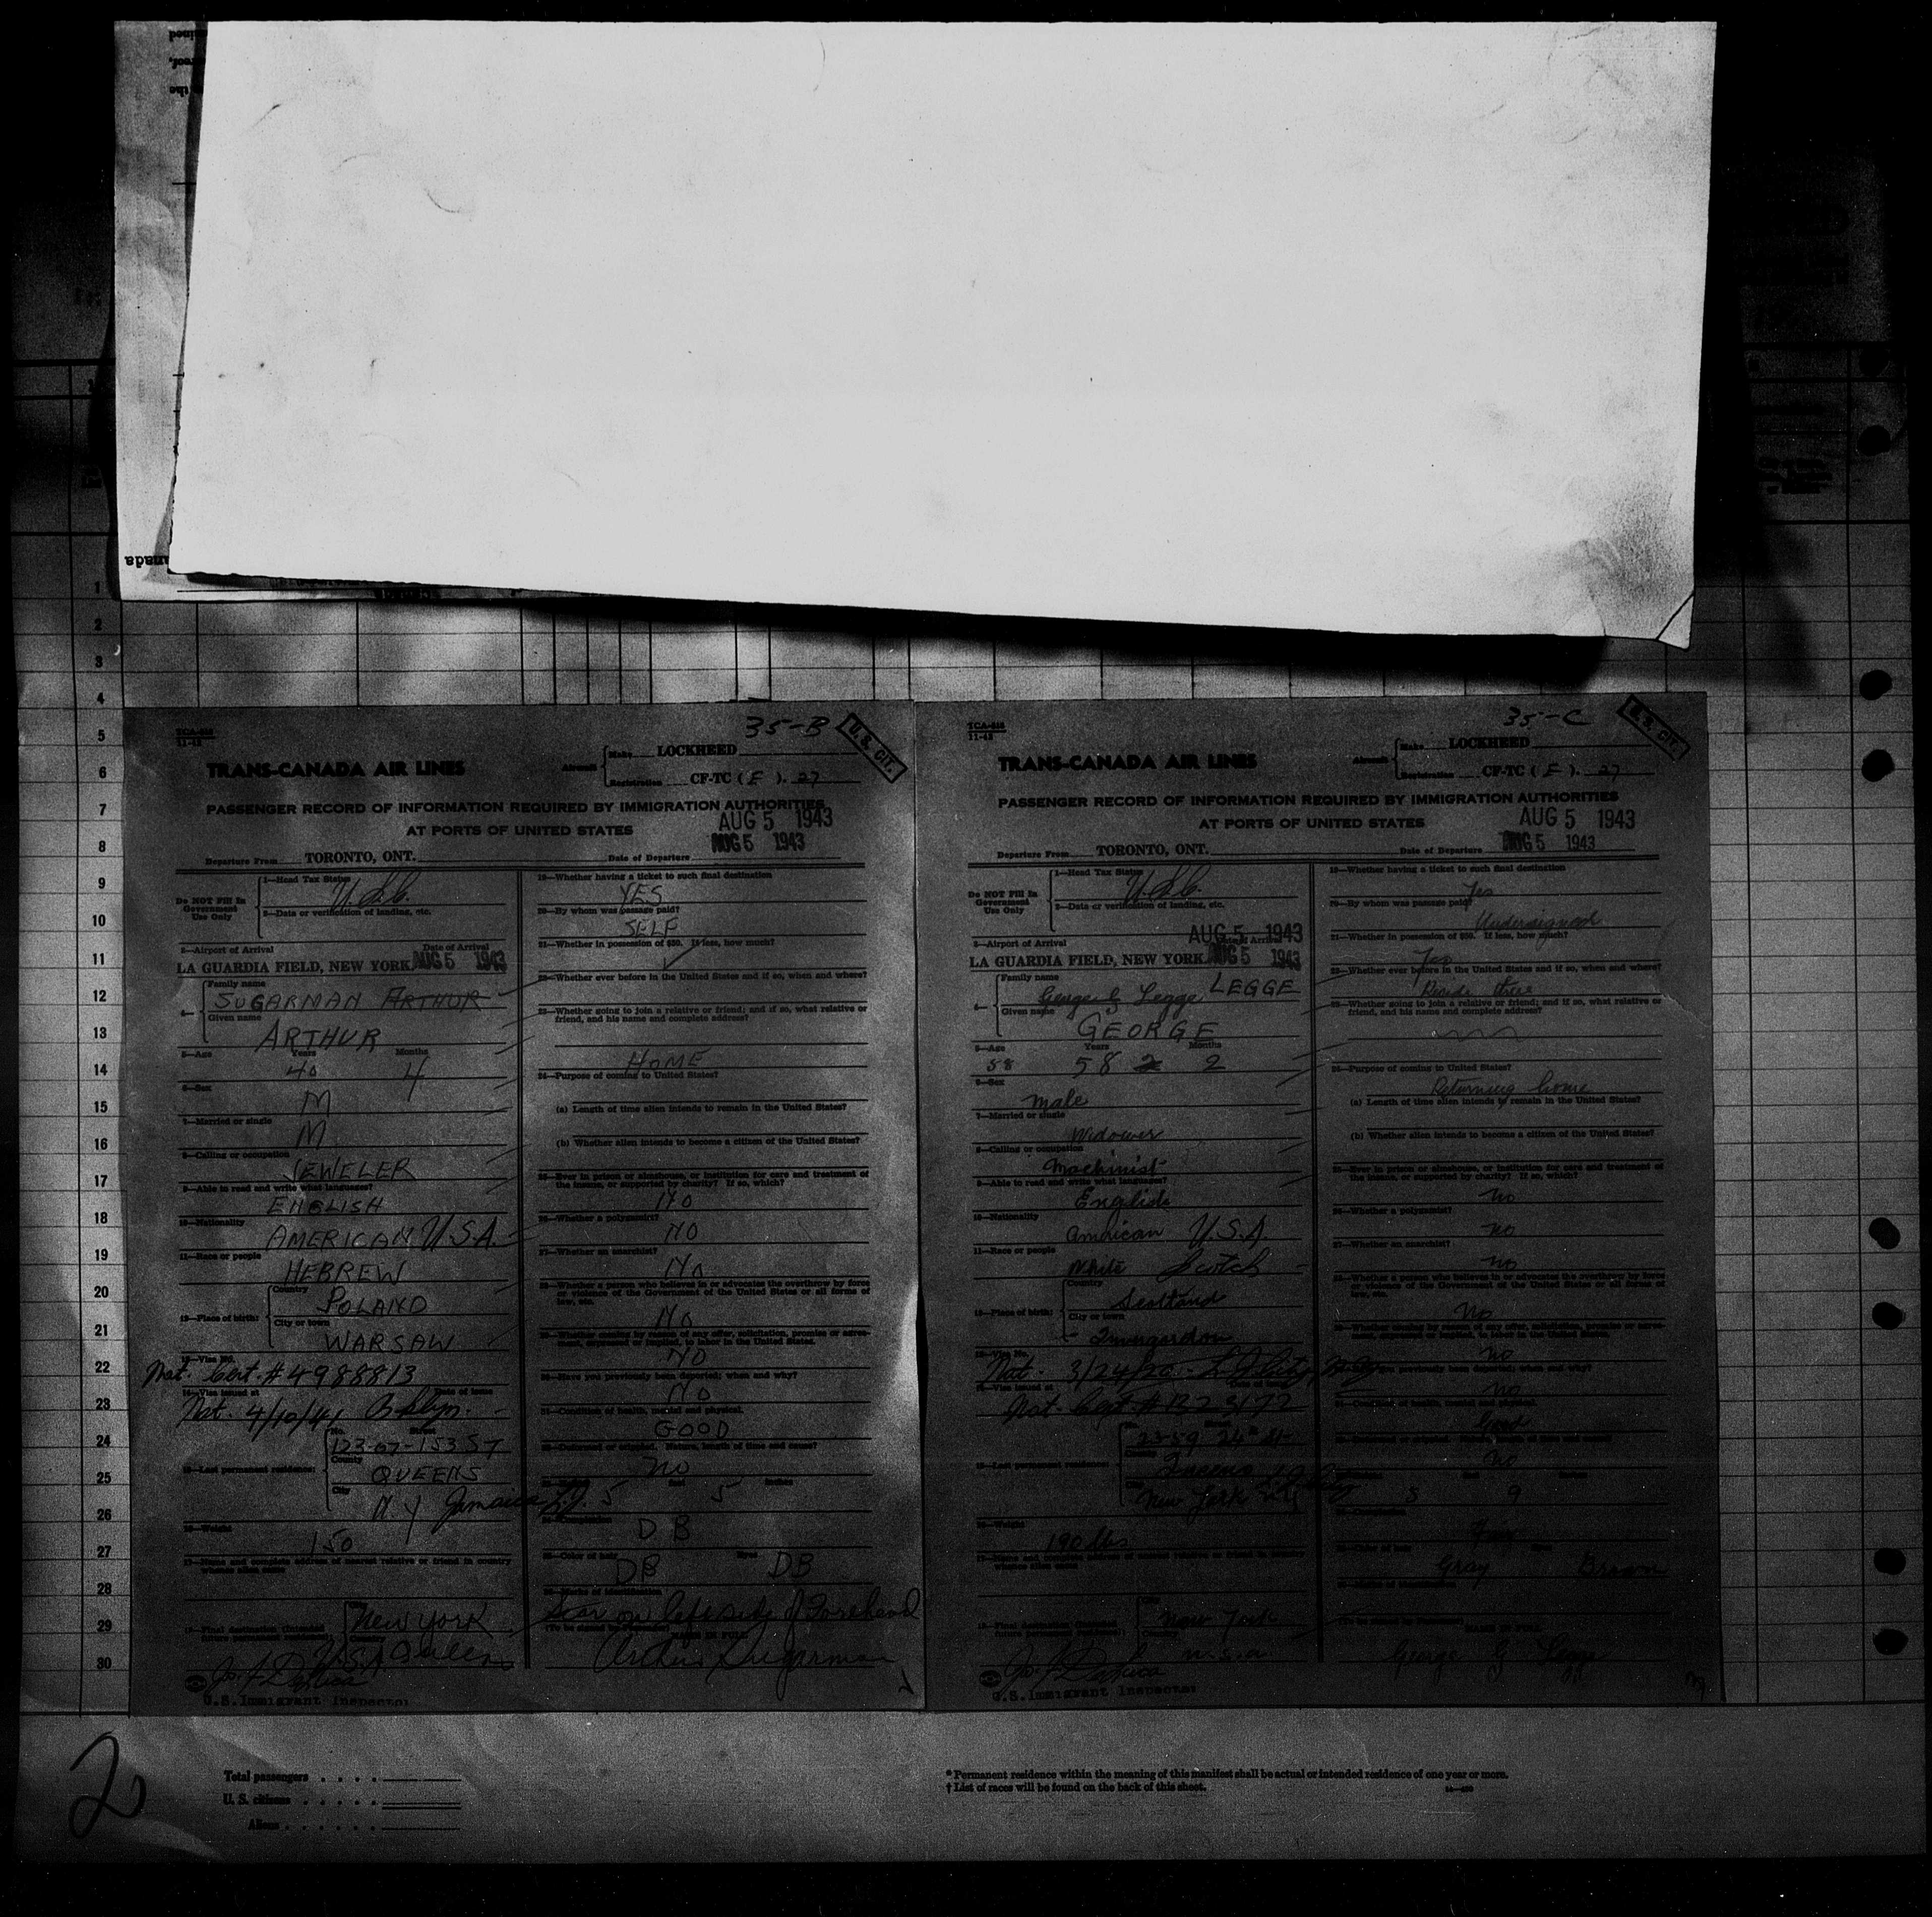 35-B
U. S. CIT.
TCA-
11-42
TRANS-CANADA AIR LINES
Aircraft
Make LOCKHEED
Registration CF-TC ( F ). 27
PASSENGER RECORD OF INFORMATION REQUIRED BY IMMIGRATION AUTHORITIES
AT PORTS OF UNITED STATES
AUG 5 1943
AUG 5 1943
Departure From TORONTO, ONT. Date of Departure
Do NOT Fill In
Government
Use Only
1—Head Tax Status
U.S.C.
2—Data or verification of landing, etc.
3—Airport of Arrival Date of Arrival
LA GUARDIA FIELD, NEW YORK AUG 5 1943
4— Family name
SUGARMAN ARTHUR
Given name
ARTHUR
5—Age Years Months
40 4
6—Sex
M
7—Married or single
M
8—Calling or occupation
JEWELER
9—Able to read and write what languages?
ENGLISH
10—Nationality
AMERICAN U.S.A.
11—Race or people
HEBREW
12—Place of birth:
Country
POLAND
City or town
WARSAW
13—Visa No.
Nat. Cert. # 4988813
14—Visa issued at Date of issue
Nat. 4/10/41 Bklyn.
15—Last permanent residence:
No. Street
123-07-153 ST
County
QUEENS
City
N.Y Jamaica L.I.
16—Weight
150
17—Name and complete address of nearest relative or friend in country
whence alien came
18—Final destination (intended
future permanent residence)
City
New York
Country
U.S.A Queens
U.S. Immigrant Inspector
19—Whether having a ticket to such final destination
YES
20—By whom was passage paid?
SELF
21—Whether in possession of $50. If less, how much?
22—Whether ever before in the United States and if so, when and where?
23—Whether going to join a relative or friend; and if so, what relative or
friend, and his name and complete address?
HOME
24—Purpose of coming to United States?
(a) Length of time alien intends to remain in the United States?
(b) Whether alien intends to become a citizen of the United States?
25—Ever in prison or almshouse, or institution for care and treatment of
the insane, or supported by charity? If so, which?
NO
26—Whether a polygamist?
NO
27—Whether an anarchist?
NO
28—Whether a person who believes in or advocates the overthrow by force
or violence of the Government of the United States or all forms of
law, etc.
NO
29—Whether coming by reason of any offer, solicitation, promise or agree-
ment, expressed or implied, to labor in the United States.
NO
30—Have you previously been deported; when and why?
NO
31—Condition of health, mental and physical.
GOOD
32—Deformed or crippled. Nature, length of time and cause?
No
Feet Inches
5 5
34—Complexion
D B
35—Color of hair Eyes
DB DB
36—Marks of identification
Scar on left side of Forehead
(To be signed by Passenger) NAME IN FULL
Arthur Sugarman
35-C
U. S. CIT.
TCA-
11-42
TRANS-CANADA AIR LINES
Aircraft
Make LOCKHEED
Registration CF-TC ( F ). 27
PASSENGER RECORD OF INFORMATION REQUIRED BY IMMIGRATION AUTHORITIES
AT PORTS OF UNITED STATES
AUG 5 1943
AUG 5 1943
Departure From TORONTO, ONT. Date of Departure
Do NOT Fill In
Government
Use Only
1—Head Tax Status
U.S.C.
2—Data or verification of landing, etc.
AUG 5 1943
3—Airport of Arrival Date of Arrival
LA GUARDIA FIELD, NEW YORK AUG 5 1943
4— Family name
George G Legge LEGGE
Given name
GEORGE
5—Age Years Months
58 58 2 2
6—Sex
Male
7—Married or single
Widower
8—Calling or occupation
Machinist
9—Able to read and write what languages?
English
10—Nationality
American U.S.A.
11—Race or people
White Scotch
12—Place of birth:
Country
Scotland
City or town
Invergordon
13—Visa No.
Nat. 3/24/20
14—Visa issued at
Nat. Cert. #
15—Last permanent residence:
23-59 24th St
Queens
New York
16—Weight
190 lbs
17—Name and complete address of nearest relative or friend in country
whence alien came
18—Final destination (intended
future permanent residence)
City
New York
Country
U.S.A.
U.S. Immigrant Inspector
19—Whether having a ticket to such final destination
Yes
20—By whom was passage paid?
Undersigned
21—Whether in possession of $50. If less, how much?
Yes
22—Whether ever before in the United States and if so, when and where?
Reside there
23—Whether going to join a relative or friend; and if so, what relative or
friend, and his name and complete address?
24—Purpose of coming to United States?
Returning home
(a) Length of time alien intends to remain in the United States?
(b) Whether alien intends to become a citizen of the United States?
25—Ever in prison or almshouse, or institution for care and treatment of
the insane, or supported by charity? If so, which?
No
26—Whether a polygamist?
No
27—Whether an anarchist?
No
28—Whether a person who believes in or advocates the overthrow by force
or violence of the Government of the United States or all forms of
law, etc.
No
29—Whether coming by reason of any offer, solicitation, promise or agree-
ment, expressed or implied, to labor in the United States.
No
you previously been deported; when and why?
No
31—Condition of health, mental and physical.
Good
No
5 9
Fair
Gray Brown
(To be signed by Passenger) NAME IN FULL
George G Legge
1
2
3
4
5
6
7
8
9
10
11
12
13
14
15
16
17
18
19
20
21
22
23
24
25
26
27
28
29
30
2
Total passengers . . . .
U. S. citizens . . . . .
Aliens . . . . . .
* Permanent residence within the meaning of this manifest shall be actual or intended residence of one year or more.
† List of races will be found on the back of this sheet.